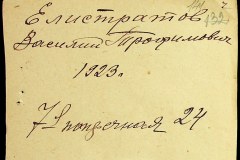 Елистратов
Василий Трофимович
1923 г.
7я поперечная 24